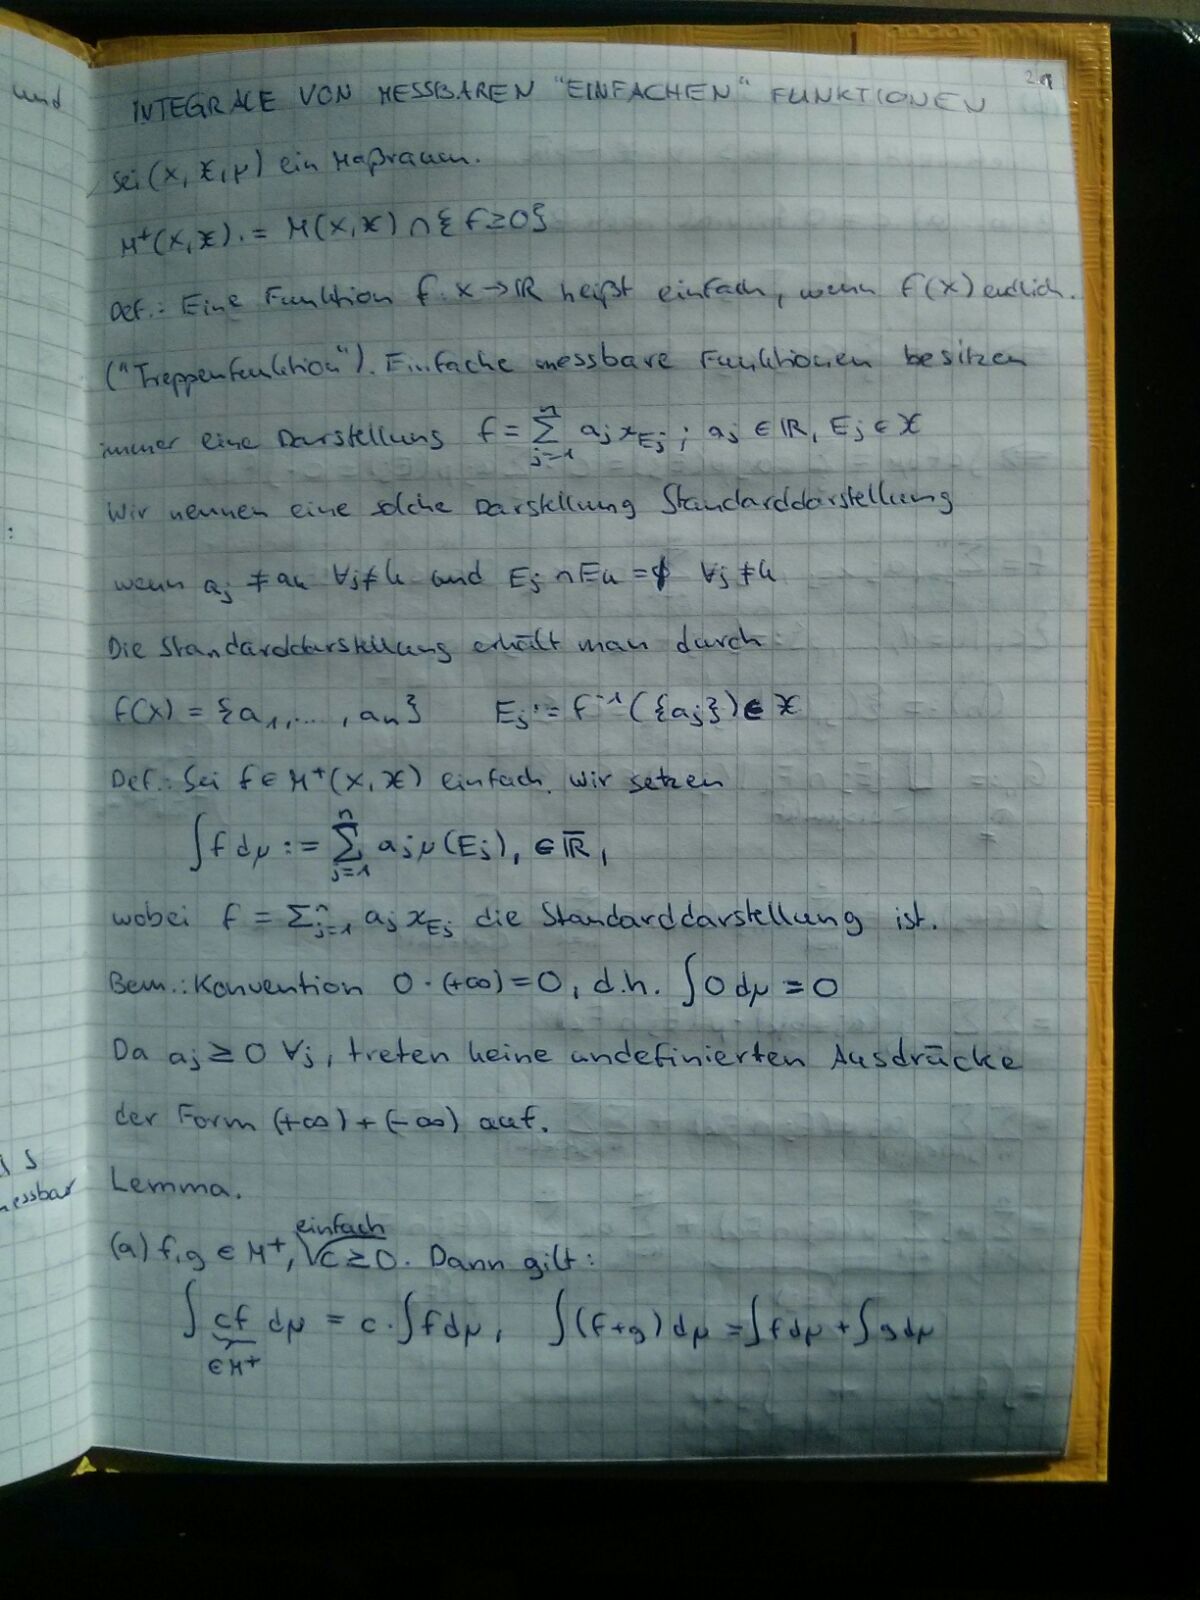 und
2.9
INTEGRALE VON MESSBAREN "EINFACHEN" FUNKTIONEN
Sei (X, 𝒳, μ) ein Maßraum.
M⁺(X, 𝒳) := M(X, 𝒳) ∩ {f ≥ 0}
Def.: Eine Funktion f: X → ℝ heißt einfach, wenn f(X) endlich.
("Treppenfunktion"). Einfache messbare Funktionen besitzen
immer eine Darstellung f = ∑_{j=1}^{n} a_j χ_{E_j}; a_j ∈ ℝ, E_j ∈ 𝒳
Wir nennen eine solche Darstellung Standarddarstellung
wenn a_j ≠ a_k ∀j≠k und E_j ∩ E_k = ∅ ∀j≠k
Die Standarddarstellung erhält man durch
f(X) = {a_1, ..., a_n} E_j := f^{-1}({a_j}) ∈ 𝒳
Def.: Sei f ∈ M⁺(X, 𝒳) einfach. Wir setzen
∫ f dμ := ∑_{j=1}^{n} a_j μ(E_j), ∈ ℝ̄,
wobei f = ∑_{j=1}^{n} a_j χ_{E_j} die Standarddarstellung ist.
Bem.: Konvention 0 · (+∞) = 0, d.h. ∫ 0 dμ = 0
Da a_j ≥ 0 ∀j, treten keine undefinierten Ausdrücke
der Form (+∞) + (-∞) auf.
Lemma.
(a) f, g ∈ M⁺, einfach c ≥ 0. Dann gilt:
∫ cf dμ = c · ∫ f dμ, ∫ (f+g) dμ = ∫ f dμ + ∫ g dμ
∈ M⁺
:
s
messbar